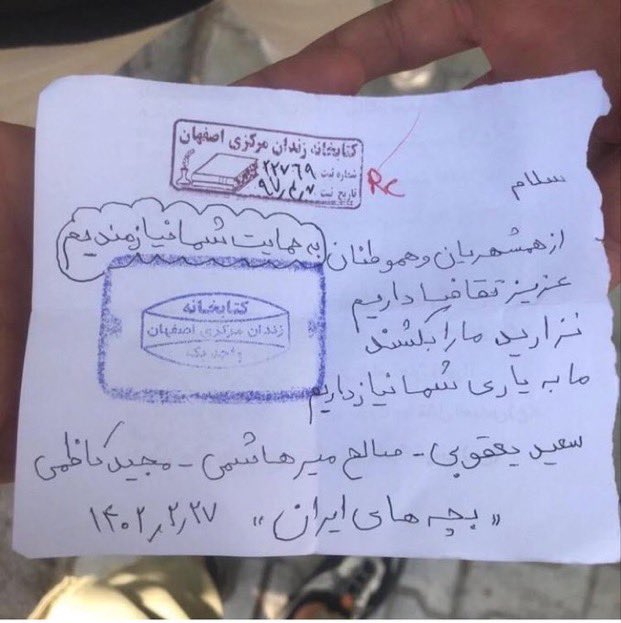 کتابخانه زندان مرکزی اصفهان
شماره ثبت ۲۲۷۶۹
تاریخ ثبت ۹۷٫۴٫۷
RC
سلام
از همشهریان و هموطنان
به حمایت شما نیازمندیم
عزیز تقاضا داریم
نزارید ما را بکشند
ما به یاری شما نیاز داریم
کتابخانه
زندان مرکزی اصفهان
سعید یعقوبی - صالح میرهاشمی - مجید کاظمی
«بچه های ایران» ۱۴۰۲٫۲٫۲۷